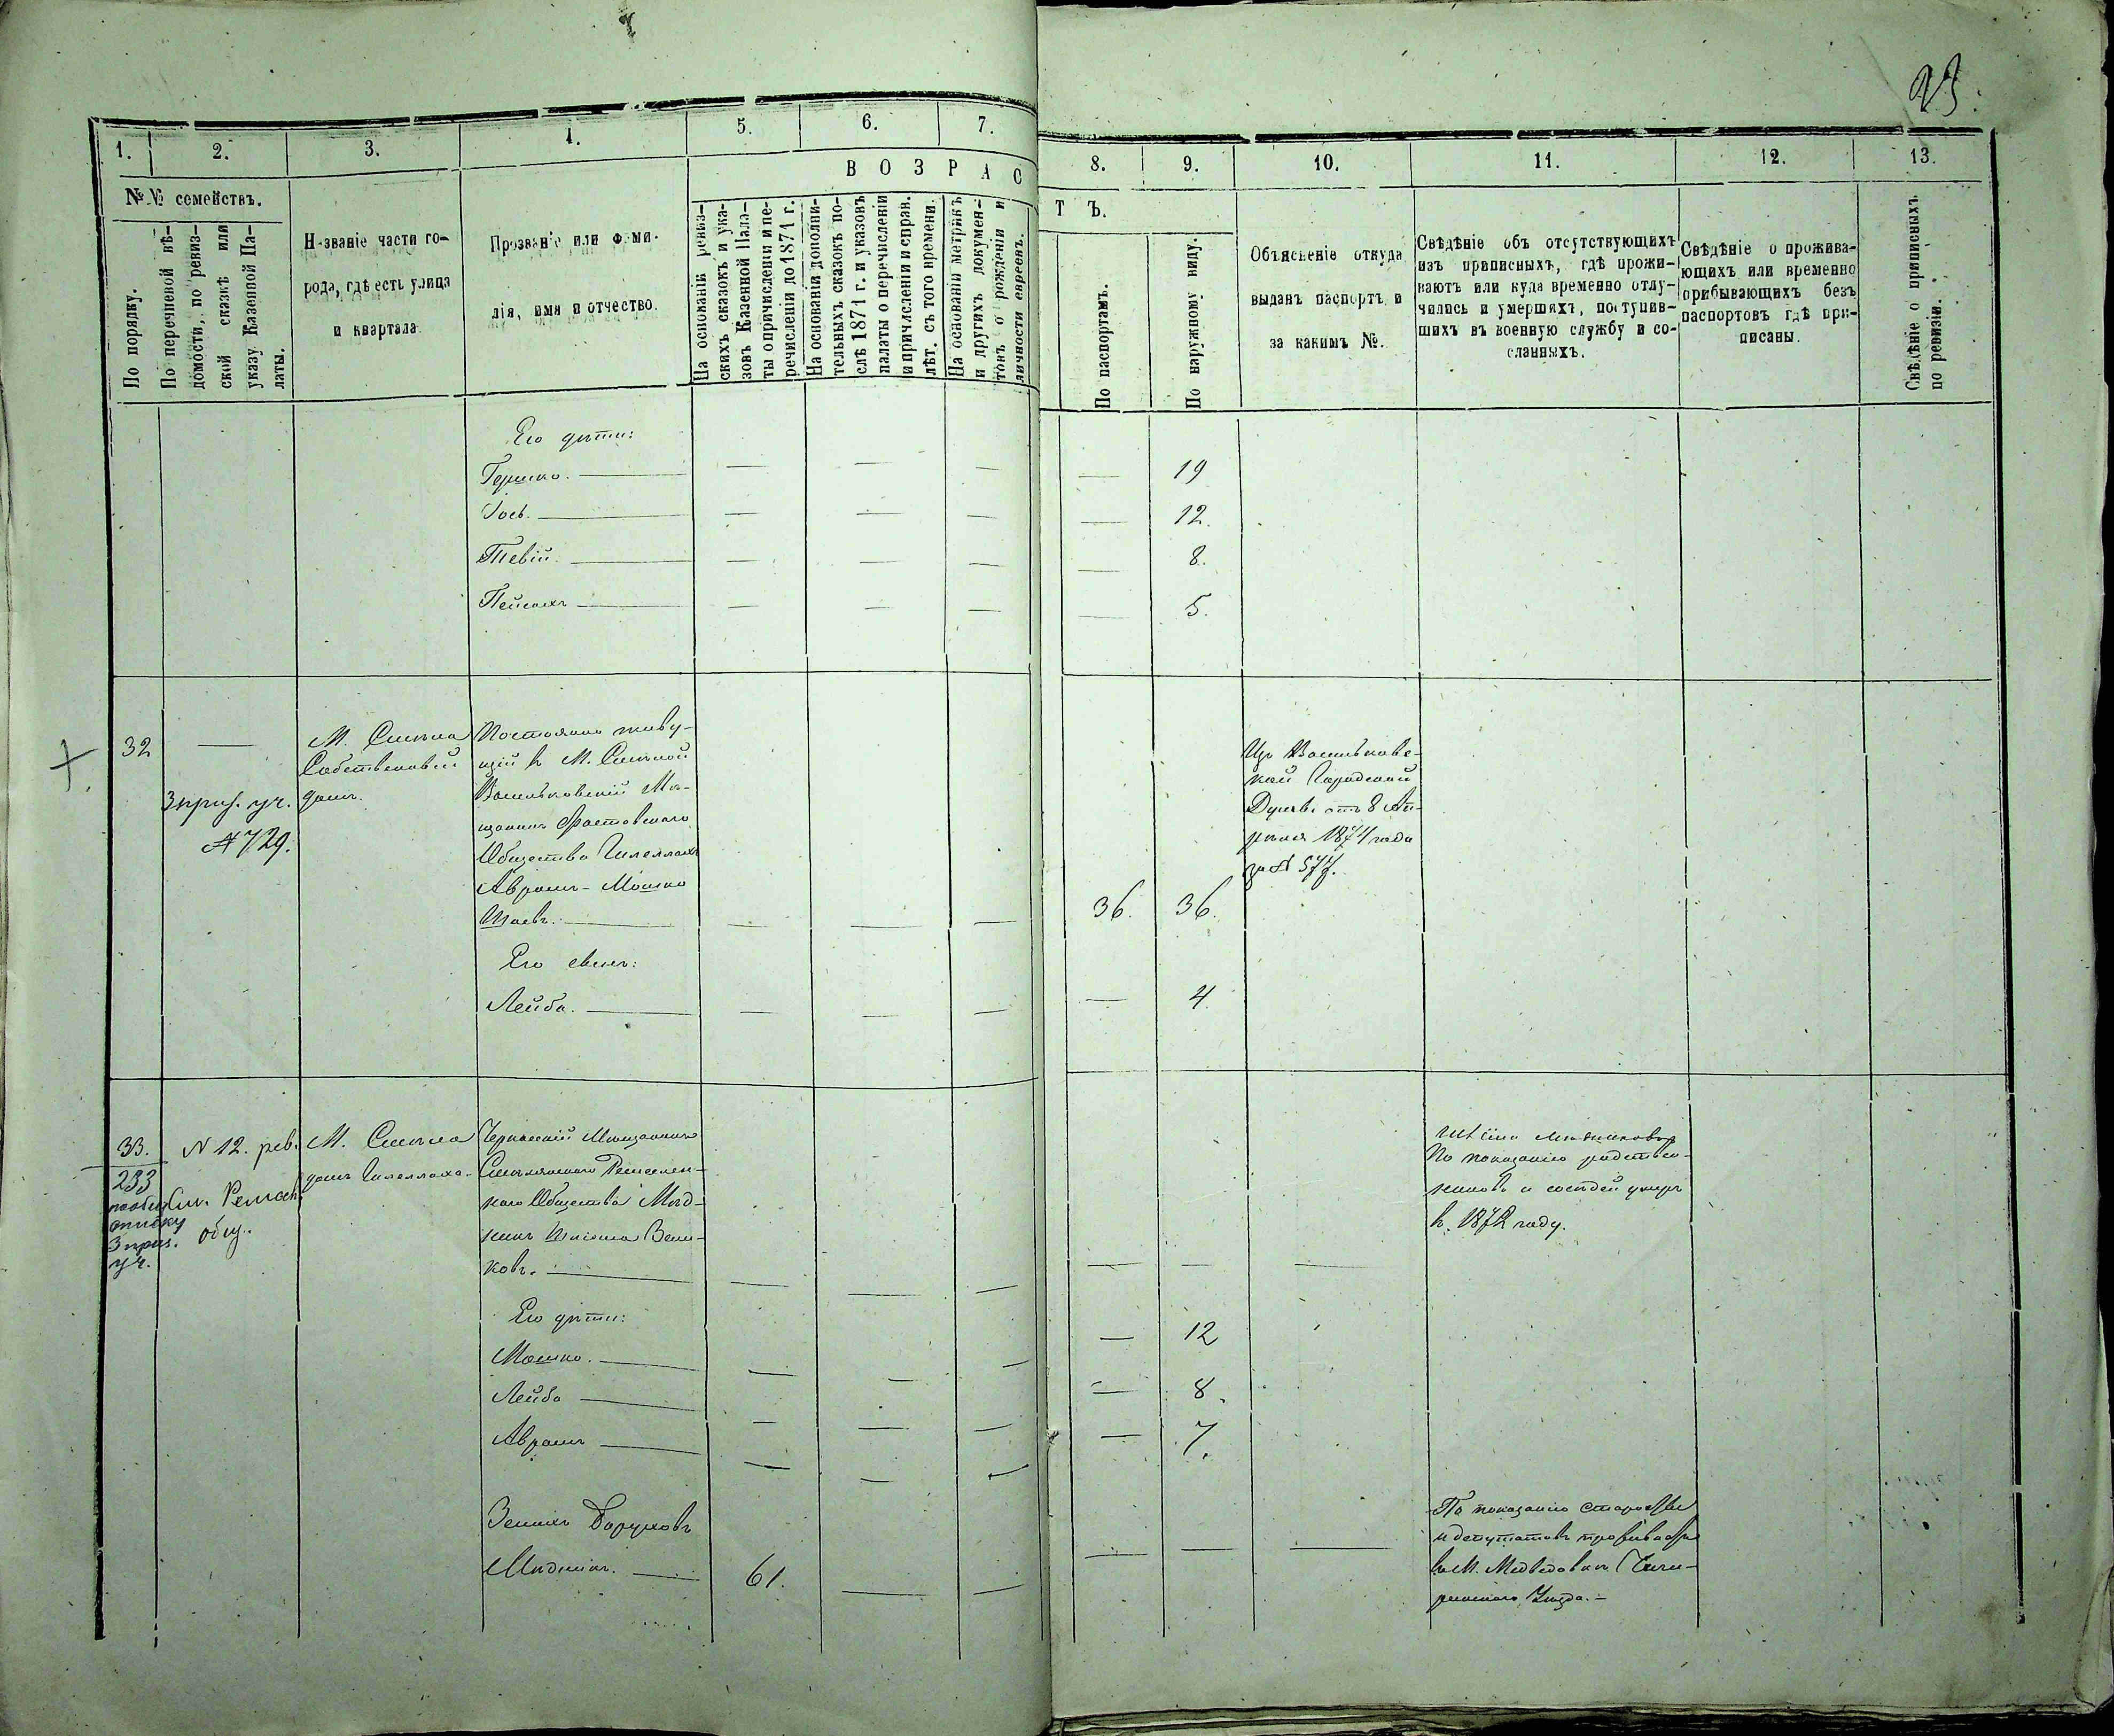 23.
1. 2. 3. 4. 5. 6. 7. 8. 9. 10. 11. 12. 13.
№№ семействъ.
По порядку.
По перечневой вѣ-
домости, по ревиз-
ской сказкѣ или
указу Казенной Па-
латы.
Названіе части го-
рода, гдѣ есть улица
и квартала
Прозваніе или Фами-
лія, имя и отчество.
ВОЗРАСТЪ.
На основаніи ревиз-
скихъ сказокъ и ука-
зовъ Казенной Пала-
ты о причисленіи и пе-
речисленіи до 1871 г.
На основаніи дополни-
тельныхъ сказокъ по-
слѣ 1871 г. и указовъ
палаты о перечисленіи
и причисленіи и справ.
лѣт. съ того времени.
На основаніи метрикъ
и другихъ докумен-
товъ о рожденіи и
личности евреевъ.
По паспортамъ.
По наружному виду.
Объясненіе откуда
выданъ паспортъ и
за какимъ №.
Свѣдѣніе объ отсутствующихъ
изъ приписныхъ, гдѣ прожи-
ваютъ или куда временно отлу-
чились и умершихъ, поступив-
шихъ въ военную службу и со-
сланныхъ.
Свѣдѣніе о прожива-
ющихъ или временно
прибывающихъ безъ
паспортовъ гдѣ при-
писаны.
Свѣдѣніе о приписныхъ
по ревизіи.
Его дѣти:
Гершко. — — — — — 19
Іось. — — — — — 12.
Тевій. — — — — — 8.
Пейсахъ — — — — — 5.
32 —
3 приз. уч.
№ 729.
М. Смѣла
Собственный
домъ.
Постоянно живу-
щій въ М. Смѣлой
Васильковскій Мѣ-
щанинъ Фастовскаго
Общества
Аврамъ-Мошко
— — — — 36. 36.
Изъ Васильковс-
кой Городской
Думы отъ 8 Ап-
рѣля 1874 года
за № 577.
Его сынъ:
Лейба. — — — — — 4
33. N 12. рев.
233
3 приз.
уч.
общ.
М. Смѣла
домъ
Черкаскій Мѣщанинъ
Смѣлянскаго Ремеслен-
наго Общества Мѣд-
никъ
ковъ. — — — — — — —
По показанію родствен-
никовъ и сосѣдей умеръ
въ 1872 году.
Его дѣти:
Мошко. — — — — — 12
Лейба — — — — — 8.
Аврамъ — — — — — 7.
Баруховъ
Мѣдникъ. — 61. — — — — —
По показанію старосты
и депутатовъ проживаетъ
въ М. Медведовкѣ Чиги-
ринскаго Уѣзда. —